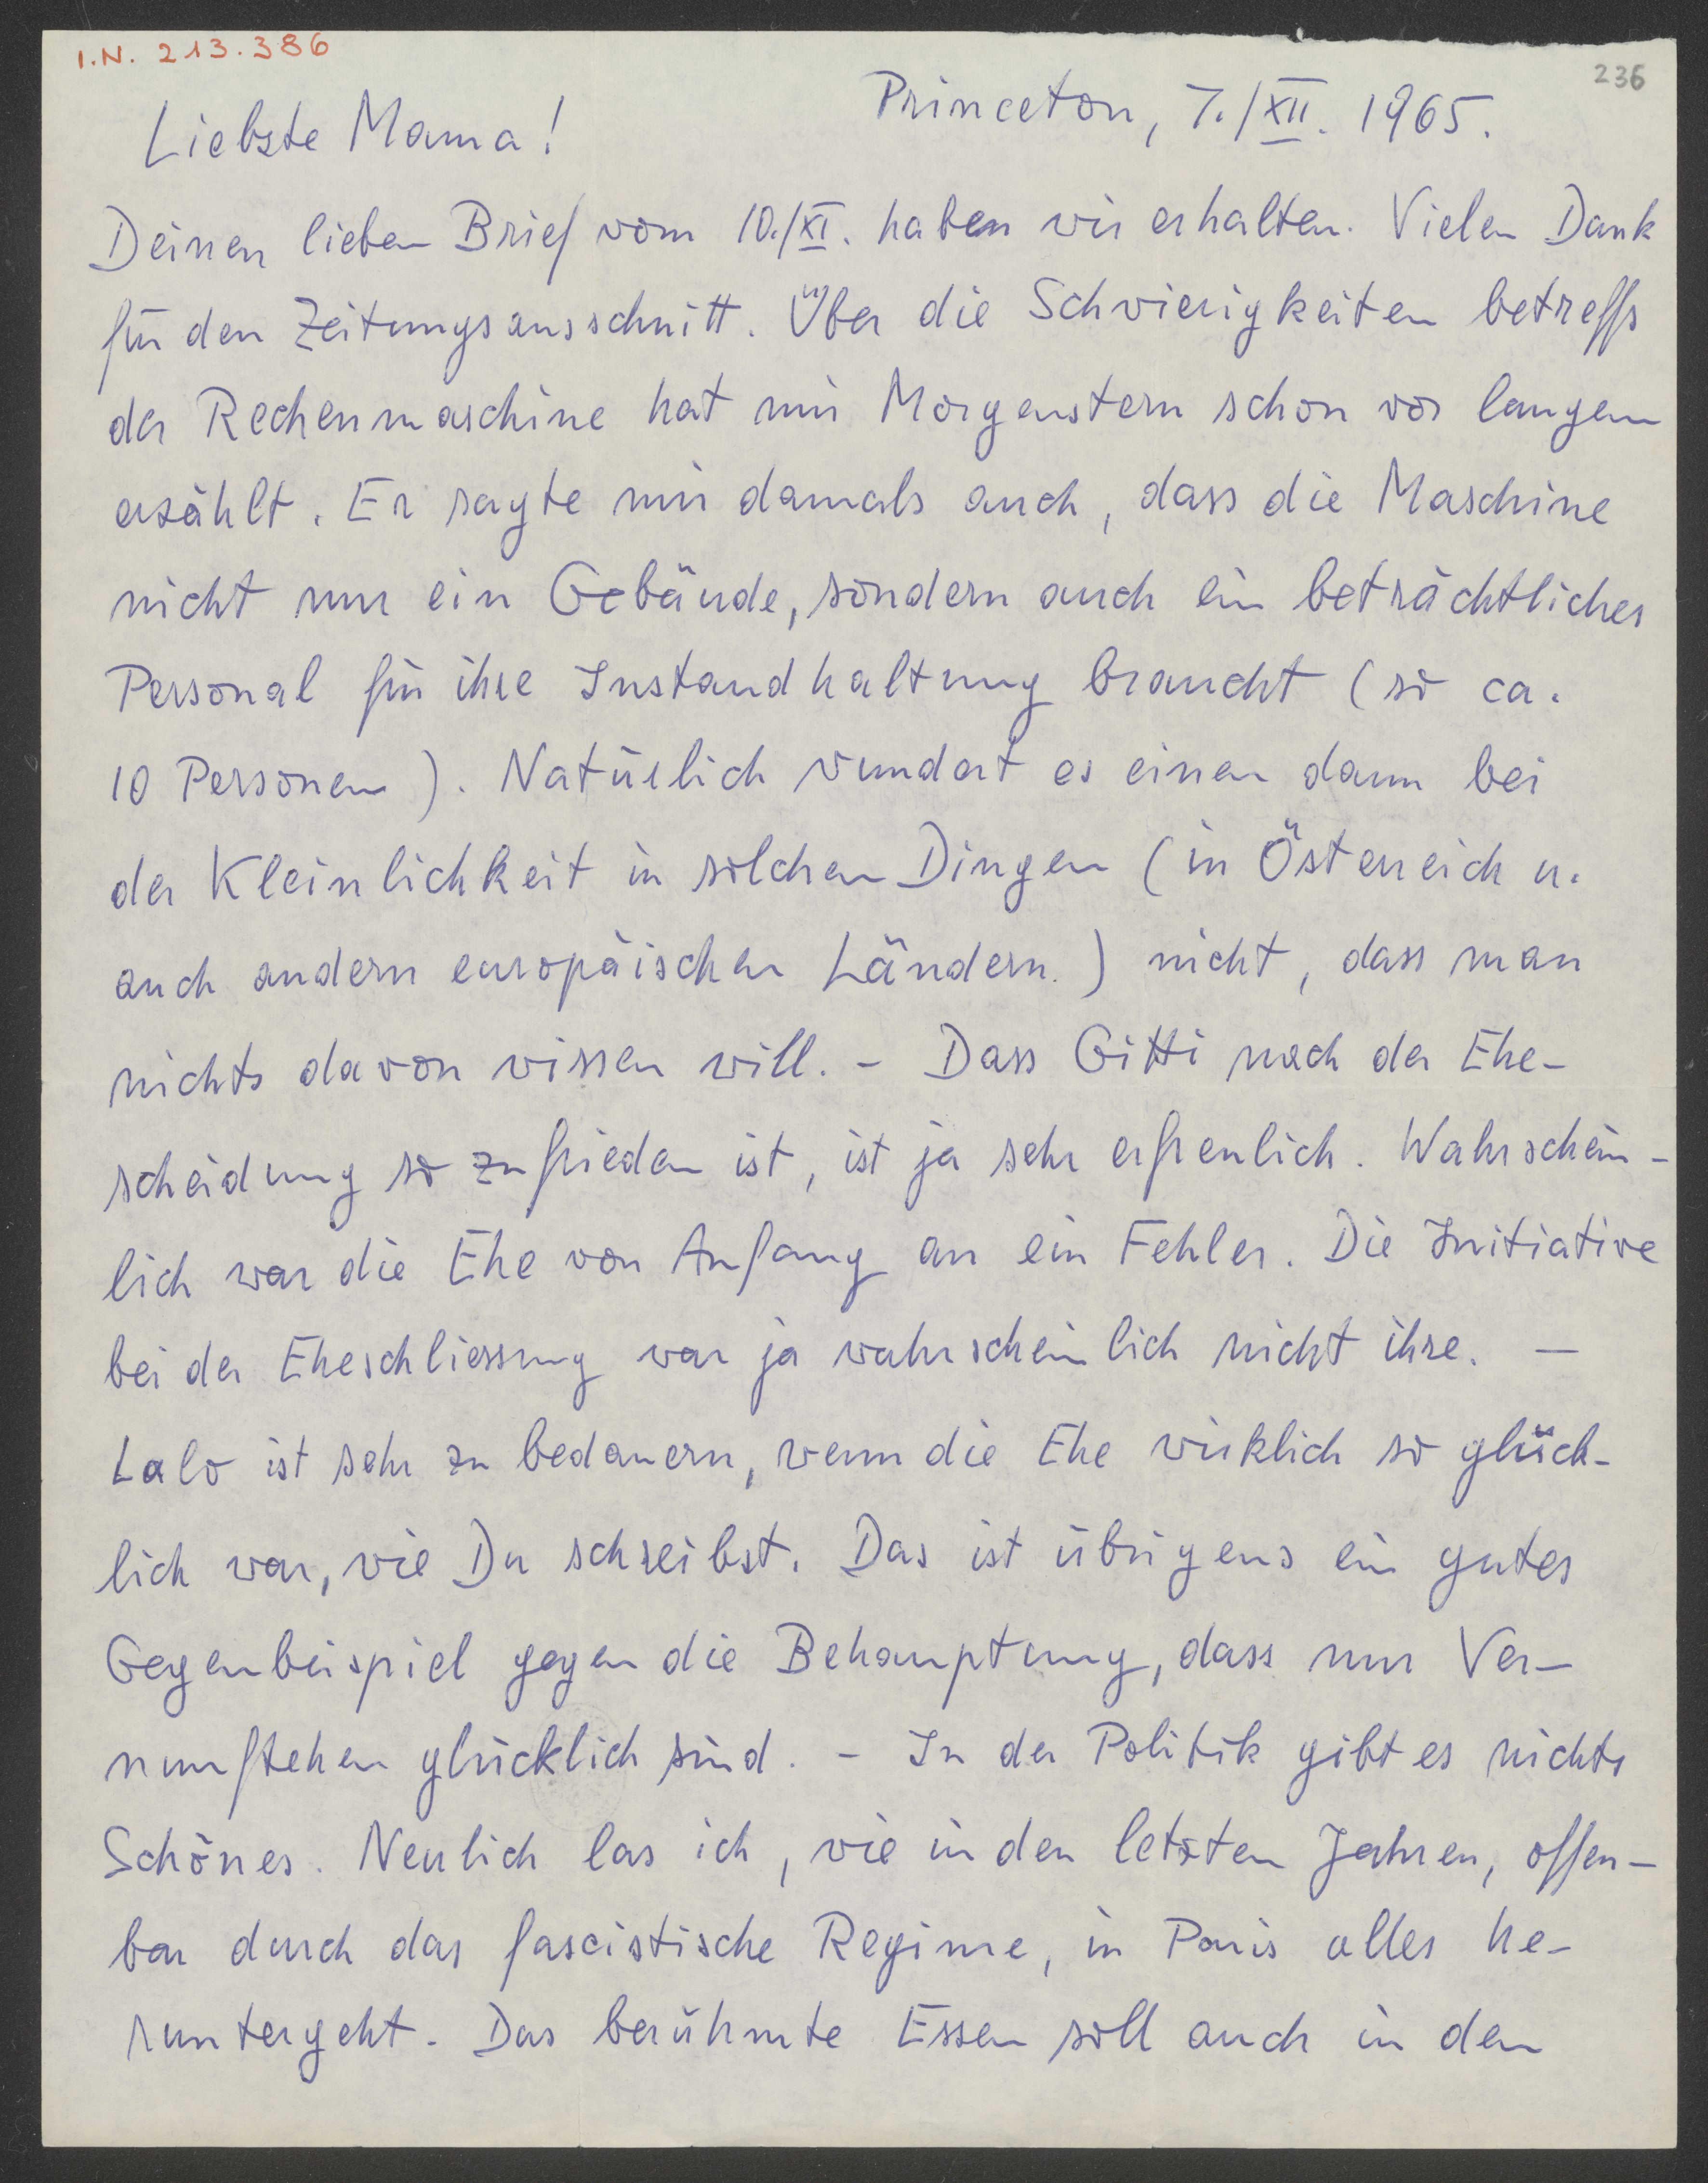 I.N. 213.386
236
Princeton, 7./XII. 1965.
Liebste Mama!
Deinen lieben Brief vom 10./XI. haben wir erhalten. Vielen Dank
für den Zeitungsausschnitt. Über die Schwierigkeiten betreffs
der Rechenmaschine hat mir Morgenstern schon vor langem
erzählt. Er sagte mir damals auch, dass die Maschine
nicht nur ein Gebäude, sondern auch ein beträchtliches
Personal für ihre Instandhaltung braucht (so ca.
10 Personen). Natürlich wundert es einen dann bei
der Kleinlichkeit in solchen Dingen (in Österreich u.
auch andern europäischen Ländern.) nicht, dass man
nichts davon wissen will. - Dass Gitti nach der Ehe-
scheidung so zufrieden ist, ist ja sehr erfreulich. Wahrschein-
lich war die Ehe von Anfang an ein Fehler. Die Initiative
bei der Eheschliessung war ja wahrscheinlich nicht ihre. —
Lalo ist sehr zu bedauern, wenn die Ehe wirklich so glück-
lich war, wie Du schreibst. Das ist übrigens ein gutes
Gegenbeispiel gegen die Behauptung, dass nur Ver-
nunftehen glücklich sind. - In der Politik gibt es nichts
Schönes. Neulich las ich, wie in den letzten Jahren, offen-
bar durch das fascistische Regime, in Paris alles he-
runtergeht. Das berühmte Essen soll auch in den